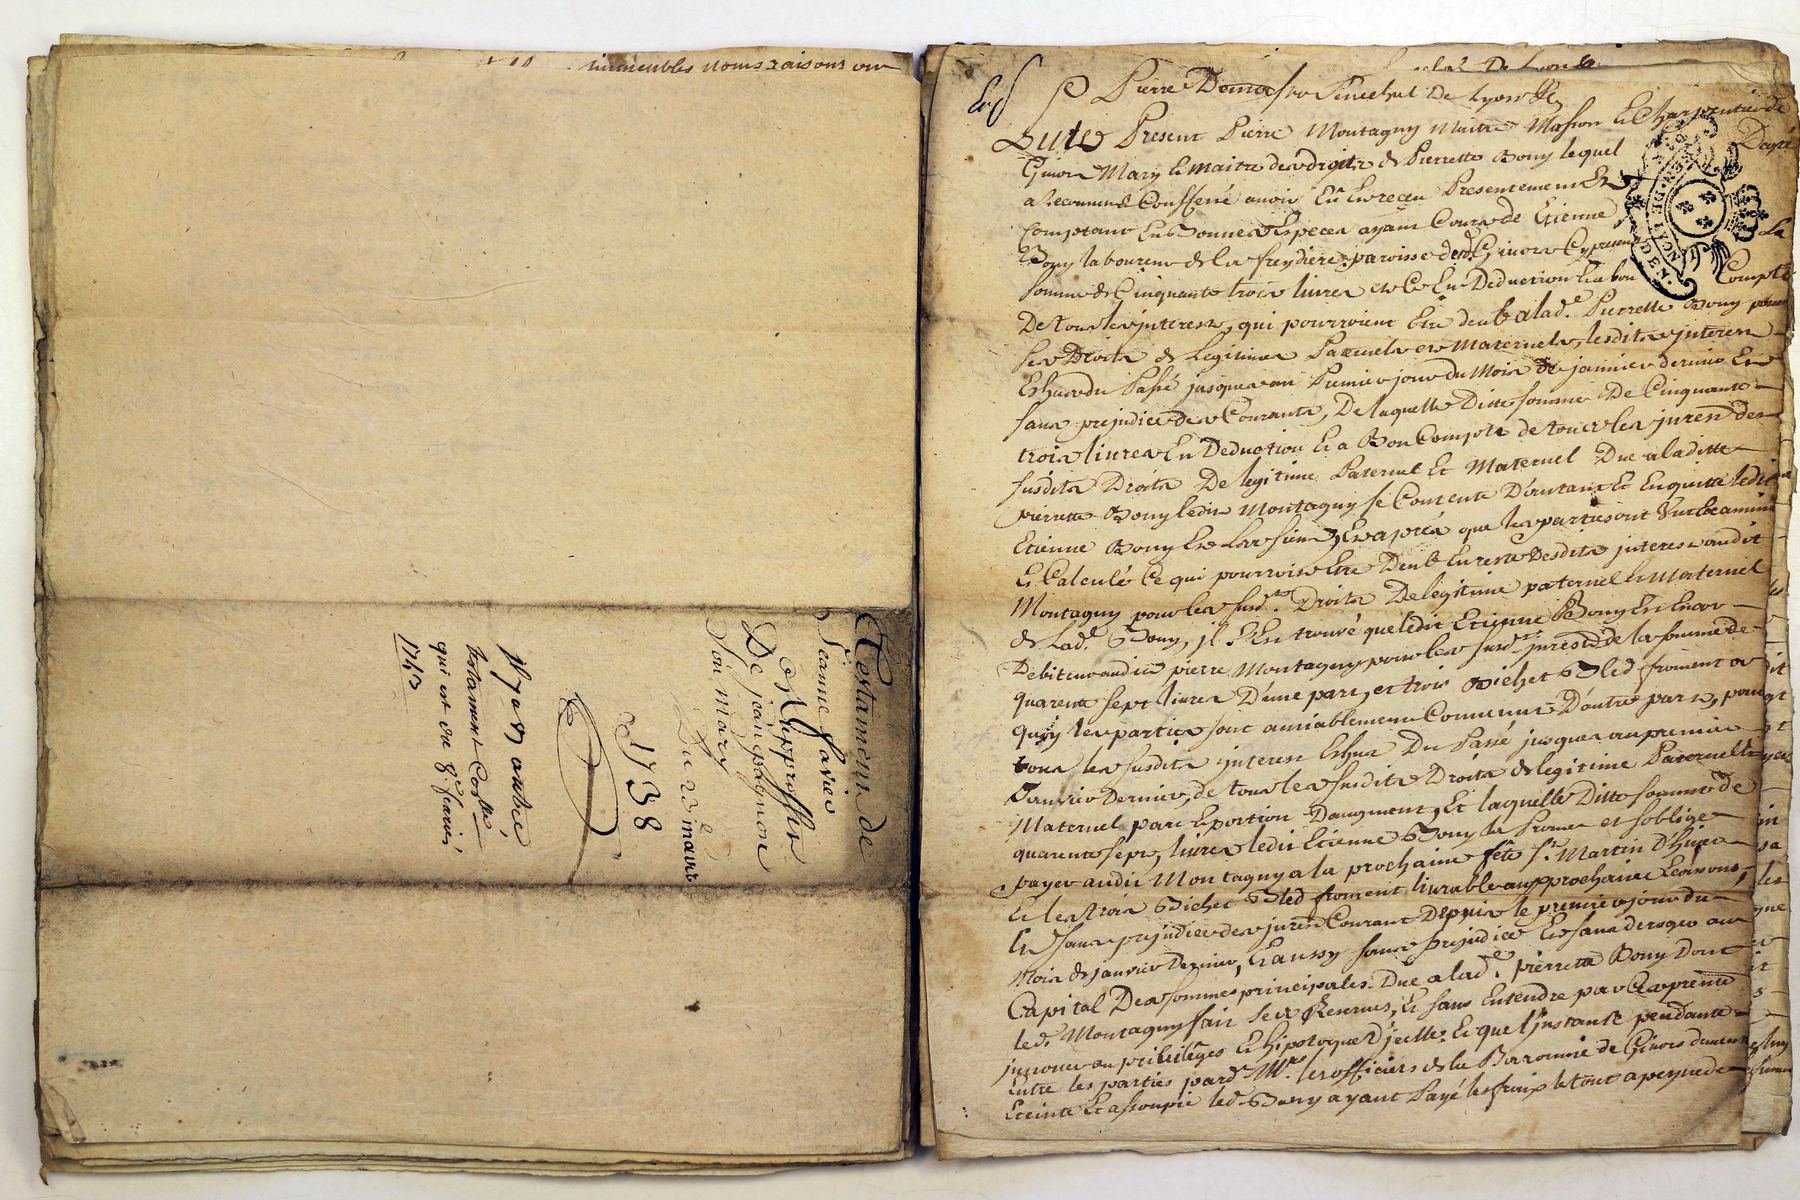 immeubles noms raisons ou
Testament de
Jeanne favier
De jean pagnon
Son mary
Du 23e mars
1738
Il y a un autre
testament
qui est du 8e fevrier
1743
Pierre Senechal De Lyon
Present Pierre Montagny Maitre Masson & Charpentier de
Givors Mary & maitre des droits de Pierrette Bony lequel
a reconnu & Confessé avoir Eû & receu Presentement &
Comptant En Bonnes Especes ayant Cours de Etienne
Bony laboureur de la freydiere paroisse dud. Givors Cy present La
somme de Cinquante trois livres et Ce En Deduction & a bon Compte
De tous les interests, qui pourroient Etre deub a lad.e Pierrette Bony pour
ses Droits de Legitimes Paternels et Maternels, lesdits interests
Eshus du Passé jusques au Premier jour du Mois de janvier dernier Et
sans prejudice des Courants, De laquelle Ditte somme De Cinquante
trois livres En Deduction & a Bon Compte de tous les
susdits Droits De legitime Paternel Et Maternel Due a laditte
pierrette Bony ledit Montagny se Contente D'autant Et En quitte ledit
Etienne Bony Et les siens, Et après que les parties ont
& Calculé Ce qui pourroit Etre Deub En reste Desdits interest audit
Montagny pour les susd.ts Droits De legitime paternel & Maternel
de Lad.e Bony, il s'est trouvé que ledit Etienne Bony Est Encor
Debiteur audit pierre Montagny pour les susd. de la somme de
quarente sept livres D'une part, et trois Bichet Bled froment
quoy les parties sont amiablement Convenus D'autre part, pour
tous les susdits interest Eshus Du Passé jusques au premier
Janvier Dernier, de tous les susdits Droits de legitime Paternel &
Maternel part & portion D'augment, Et laquelle Ditte somme de
quarente sept livres ledit Etienne Bony la Promet et s'oblige
payer audit Montagny a la prochaine fête St. Martin D'hiver
Et les trois Bichet Bled froment livrable aux prochaine
Et sans prejudice des Courant Depuis le premier jour du
Mois de janvier Dernier, Et aussy sans prejudice Et sans deroger au
Capital Des sommes principales Due a lad.e pierrette Bony Dont
led. Montagny fait ses Reserves, & sans Entendre par Ces presente
innover au privilêges & hipoteque D'jcelles & que l'Instance pendante
Entre les parties pard.t Mrs. les officiers de la Baronnie de Givors demeure
Eteinte Et assoupie led. Bony ayant Payé les frais le tout a peyne de